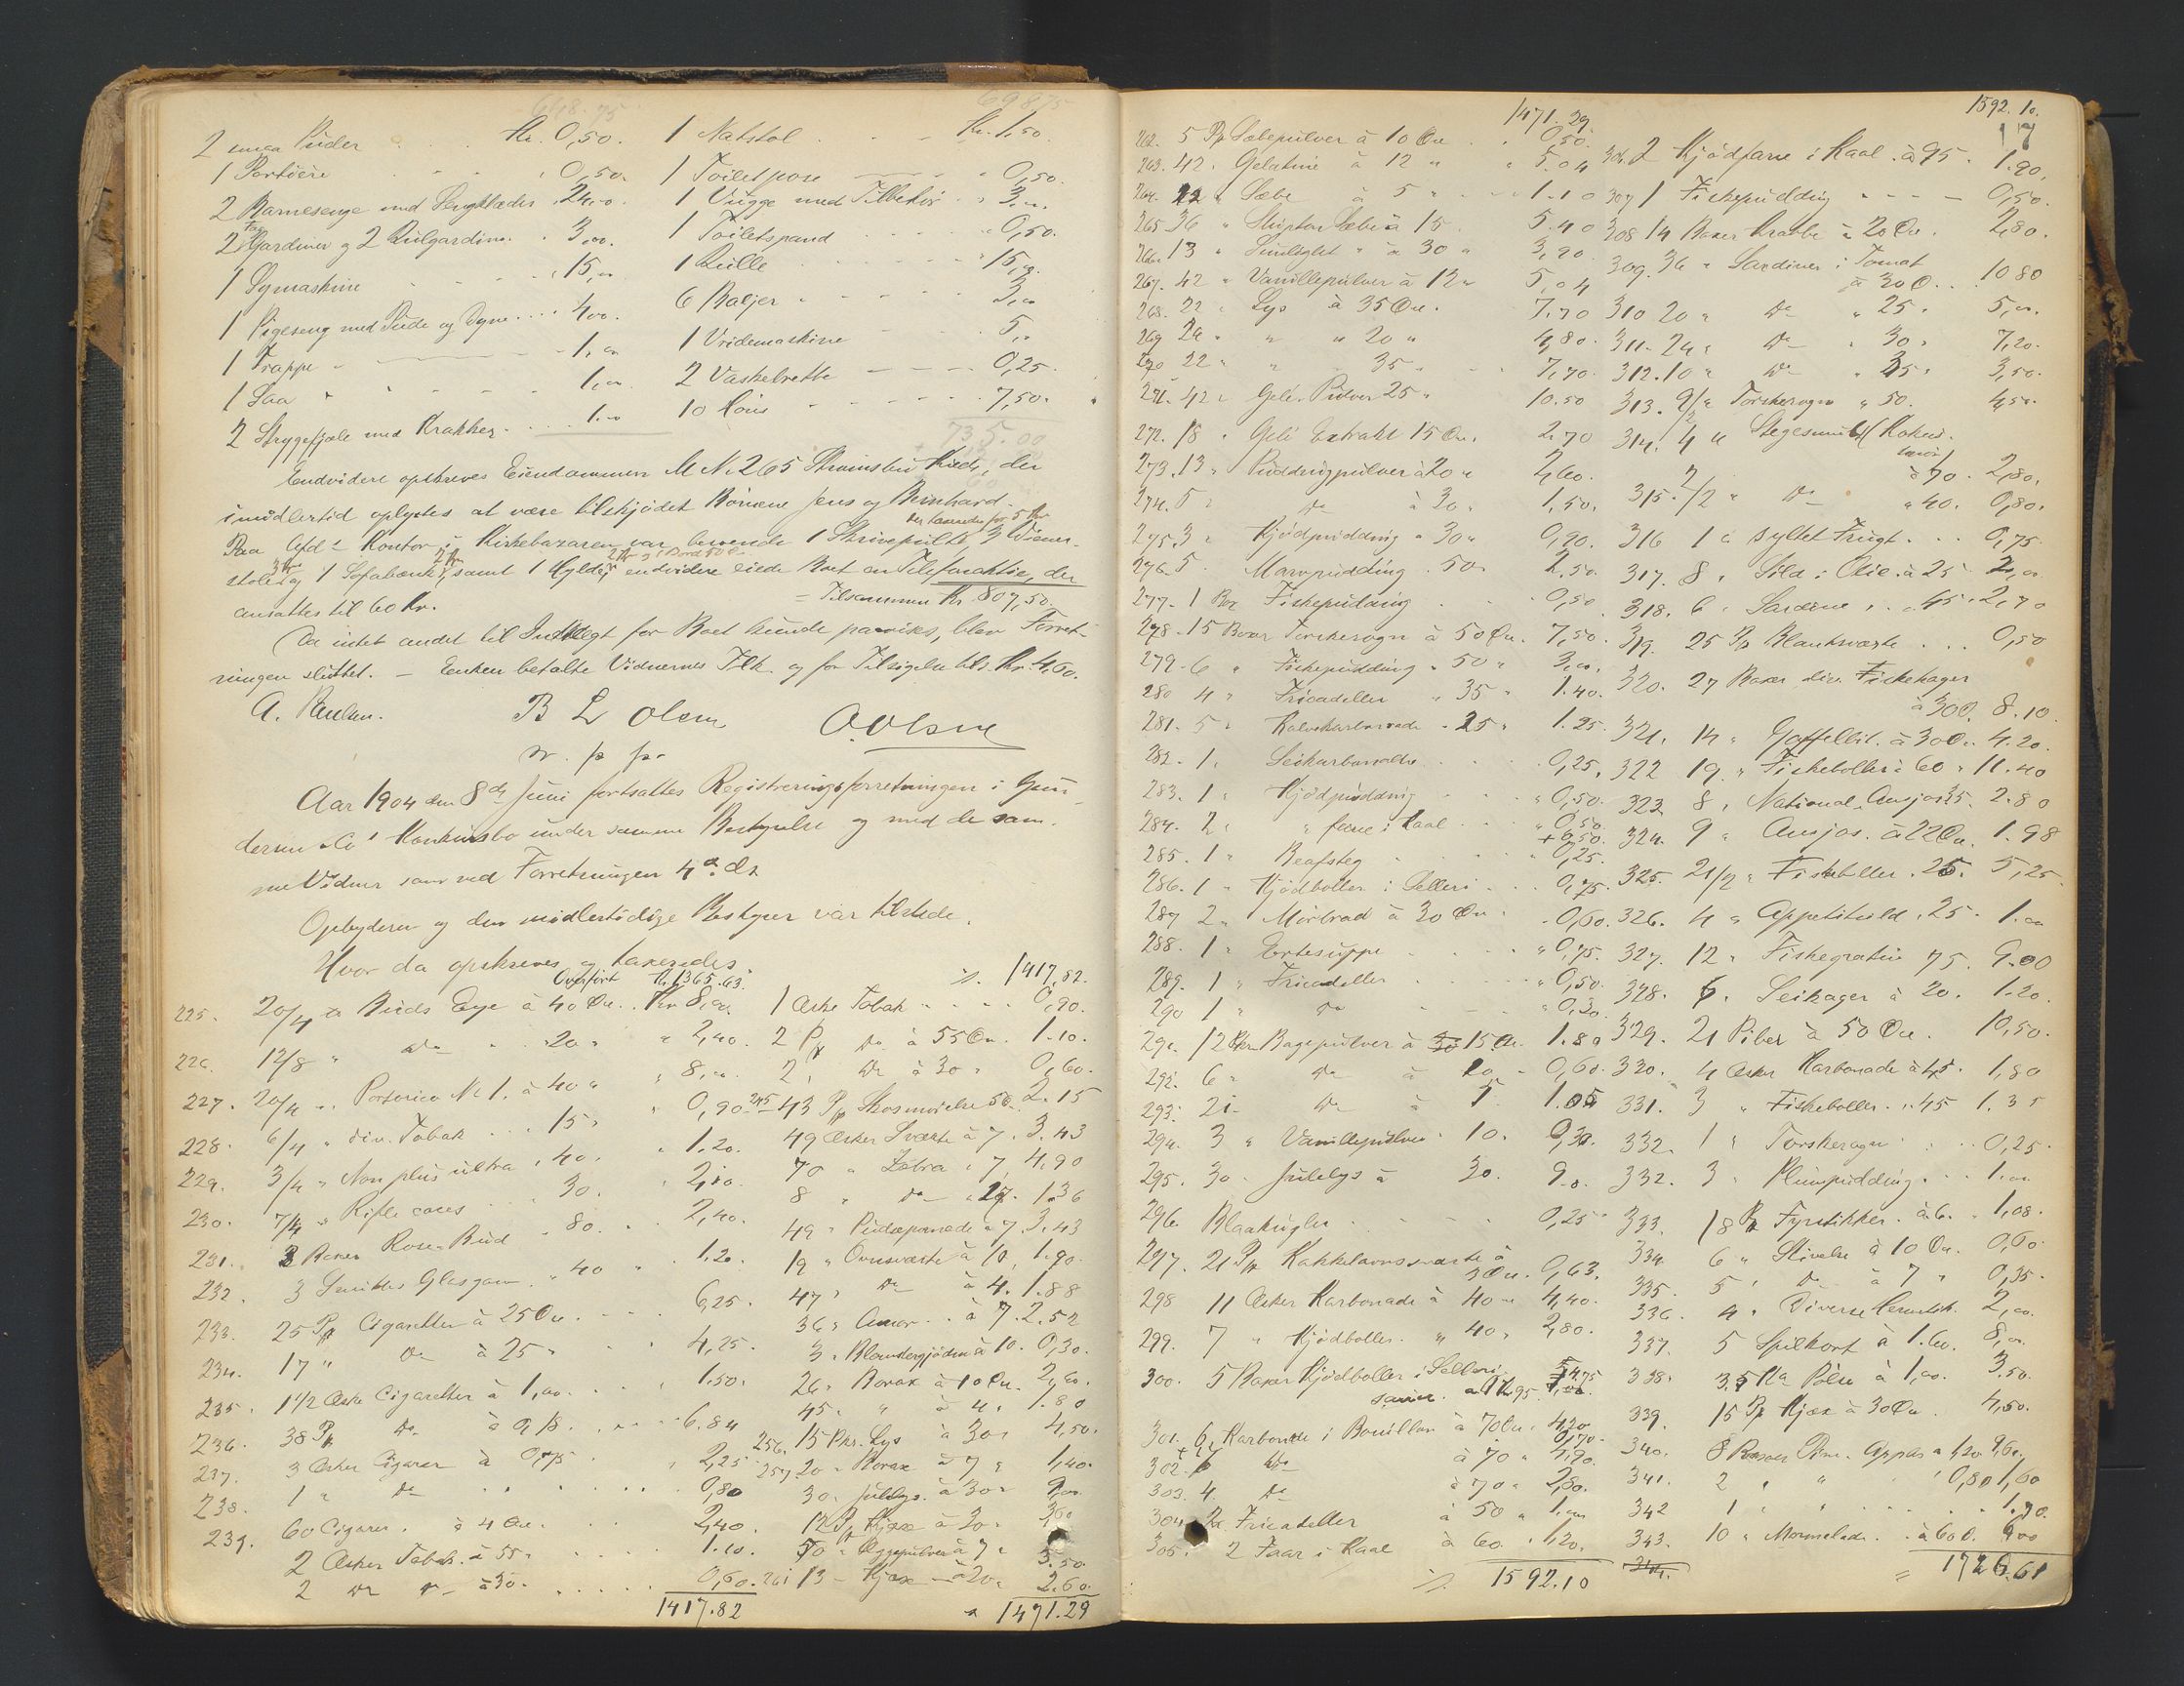 668.75
69875
2 smaa Puder . . . Kr. 0,50.
1 Portière . . . 0,50.
2 Barnesenge med Sengklæder . 24,00.
2 fag Gardiner og 2 Rulgardiner . 3,00.
1 Symaskine . . 15,00
1 Pigeseng med Pude og Dyne . . . 4,00.
1 Trappe . . . 1,00
1 Saa . . . 1,00
2 Strygefjæle med Krakker . . . 1.00
1 Natstol . . . Kr. 1,50.
1 Toiletpose . . . 0,50.
1 Vugge med Tilbehör . . 3,00.
1 Toiletspand . . . 0,50.
1 Rulle . . . 15,00.
6 Baljer . . . 3,00
1 Vridemaskine . . . 5,00
2 Vaskebrette . . . 0,25.
10 Höns . . . 7,50.
735.00
Endvidere opskreves Eiendommen M. No 265 Strømsbu Kreds, der
imidlertid oplystes at være tilskjödet Börnene Jens og Bernhard.
Paa Afd.s Kontor i Kirkebazaren var beroende 1 Skrivepult, der taxeredes for 5 Kr 3 Wiener-
stole 3 Kr og 1 Sofabænk, 2 Kr samt 1 Hylde, 2 Kr og 1 Bord 50 Ø endvidere eiede Boet en Telefonaktie, der
ansattes til 60 Kr.
= Tilsammen Kr. 807,50.
Da intet andet til Indtægt for Boet kunde paavises, blev Forret-
ningen sluttet. – Enken betalte Vidnernes Tilk. og for Tilsigelse tils. Kr. 4,60.
A. Paulsen. B L Olsen O. Olsen
m. p. p.
Aar 1904 den 8de Juni fortsattes Registreringsforretningen i Gun-
dersen & Co's Konkursbo under samme Bestyrelse og med de sam-
me Vidner som ved Forretningen 4de ds
Opbyderen og den midlertidige Bestyrer var tilstede.
Hvor da opskreves og taxeredes
Overfört Kr. 1365.63.
225. 20/4 Birds Eye à 40 Øre . Kr 8,00.
226. 12/8 " Do . . 20 " " 2,40.
227. 20/4 " Portorico No 1. à 40 " " 8,00.
228. 6/4 " div. Tobak . . 15 " " 0,90
229. 3/4 " Non plus ultra . 40. " 1.20.
230. 7/4 " Rifle cares . 30. 2,10.
231. 3 Baxer Rose Bud . 80. 2,40.
232. 3 Smiths Glasgow . " 40 " 1.20.
233. 25 Pk Cigaretter à 25 Øre . . . 6,25.
234. 17 " Do à 25 " . . 4,25.
235. 1 1/2 Æske Cigaretter à 1,00. . . 1.50.
236. 38 Pk Do à 0,18. . . . 6.84
237. 3 Æsker Cigarer à 0,75 . . 2,25
238. 1 " Do . . . 0,80
239. 60 Cigarer . à 4 Øre . . . 2,40.
2 Æsker Tobak. à 55 " . . . 1.10.
2 Do à 30. . . . 0,60.
1417.82
Tr. 1417.82.
1 Æske Tobak . . . 0,90.
2 Pk Do à 55 Øre . 1.10.
2 " Do à 30 " 0,60.
245 43 Pk Skosmörelse 5 Ø. 2.15
49 Æsker Sværte à 7. 3.43
70 " Zebra . 7. 4.90
8 " Do " 17. 1.36
49 " Pudsepomade " 7. 3.43
19 " Ovnsværte à 10. 1.90.
47 " Do à 4. 1.88
36 " Amor . . à 7. 2.52
3 " Blomstergjödn à 10. 0,30.
26 " Borax à 10 Øre. 2,60.
45 " " à 4. 1.80
256. 15 Pkr. Lys à 30 " 4,50.
257 20 " Borax à 7 " 1,40.
30 " Julelys. à 30 " 9,00.
12 Pk Kjæx à 30 " 3,60
50 " Æggepulver à 7 " 3.50
261 13 – Kjæx – à 20 " 2.60.
1471.29
1471.29
262. 5 Pk Sæbepulver à 10 Øre . . 0,50.
263. 42 " Gelatine à 12 " " 5.04
264. 22 " Sæbe à 5 " 1.10
265 36 " Sæbe à 15 5.40
266. 13 " Sunlight " à 30 " 3,90
267. 42 " Vanillepulver à 12 " 5,04
268. 22 " Lys à 35 Øre. 7.70
269 24 " " " 20 " 4,80.
270 22 " " 35 " . 7,70.
271. 42 " Gelé-Pulver 25 " 10.50
272. 18 " Gelé Extrakt 15 Øre. 2.70
273. 13 " Puddingpulver à 20 " 2,60.
274. 5 " Do à 30 " 1,50.
275. 3 " Kjödpudding " 30 " 0,90.
276. 5 Marvpudding . 50 " 2,50.
277. 1 Box Fiskepudding . . . 0,50.
278. 15 Boxer Torskerogn à 50 Øre. 7,50.
279. 6 " Fiskepudding " 50 " 3,00.
280 4 " Fricadeller " 35 " 1.40.
281. 5 " Kalvekarbonade . 25 " 1.25.
282. 1 " Seikarbonade . . . 0,25.
283. 1 " Kjödpudding . . " 0,50.
284. 2 " " farce i Kaal . . " 0,50. + 0,50.
285. 1 " Beafsteg . . . 0,25.
286. 1 " Kjödboller i Selleri . . 0,75.
287 2 " Mörbrad à 30 Øre . 0,60.
288. 1 " Ertesuppe . . . " 0,75.
289. 1 " Fricadeller . . . " 0,50.
290 1 " Do . . . " 0,30.
291. 12 Pkr. Bagepulver à 15 Ør. 1.80
292. 6 " Do à 10 " 0,60.
293. 21 – Do à 5 1.05
294. 3 " Vanillepulver . 10. 0,30.
295. 30 . Julelys à 30. 9.0.
296. Blaakugler . . . 0,25
297. 21 Pk Kakkelovnssværte à 3 Øre. 0,63.
298 11 Æsker Karbonade à 40 " 4,40.
299. 7 " Kjödboller. " 40 " 2,80.
300. 5 Baxer Kjödboller i Selleri
sauce. à 95 4,75
301. 6 Karbonade i Bouillon à 70 Øre. 4,20
302. Do à 70 "
303. 4. Do à 70 " 2,80.
304. 2 Fricadeller à 50 " 1.00
305. 2 Faar i Kaal à 60. 1,20.
Tr. 1592.10
1592.10.
17
306. 2 Kjödfarce i Kaal . à 95. 1.90.
307 1 Fiskepudding . . . 0,50.
308 14 Boxer Krabbe à 20 Øre. 2,80.
309. 36 " Sardiner i Tomat
à 30 Ø. . . 10 80
310 20 " Do " 25 " 5,00.
311. 24 " Do . 30 " 7,20.
312. 10 " Do " 35 " 3,50.
313. 9/2 " Torskerogn " 50. 4,50.
314. 4 " Stegesmult (Kokus-
smör) à 70. 2,80.
315. 2/2 " Do " 40. 0,80.
316 1 " syltet Frugt . . . 0,75
317. 8 " Sild i Olie. à 25 2,00
318. 6 " Sardine . . " 45. 2,70
319. 25 Pk Blanksværte . . . 0,50
320. 27 Boxer div. Fiskekager
à 30 Ø. 8.10.
321. 14 " Gaffelbit. à 30 Ør. 4.20.
322 19 " Fiskeboller à 60 " 11.40
323 8 " National Ansjos 35. 2.80
324. 9 " Ansjos. à 22 Ør. 1.98
325. 21/2 " Fiskeboller . 25. 5,25.
326. 4 " Appetitsild . 25. 1.00
327. 12 " Fiskegratin 75. 9.00
328. 6. Seikager à 20. 1.20.
329. 21 Piber à 50 Øre. 10,50.
330. 4 Æsker Karbonade à 45. 1,80
331. 3 " Fiskeboller . " 45 1.35
332. 1 " Torskerogn . . . 0,25.
332. 3 " Plumpudding . . . 1.00
333. 18 Pk Fyrstikker. à 6. 1,08.
334 6 " Stivelse à 10 Øre. 0,60
335. 5 " Do à 7 " 0,35.
336. 4 " Diverse Hermetik. 2,00.
337. 5 Spilkort à 1.60. 8,00.
338. 3.5 Kg Pölse à 1,00. 3.50.
339. 15 Pk Kjæx à 30 Øre . 4,50.
340. 8 Boxer Pine-Apples à 1,20 9,60,
341. 2 " " 0,80 1,60
342 1 " " . . . 1.90.
343. 10 " Marmelade . . à 60 Ø. 6 00
344.
= 1726.61